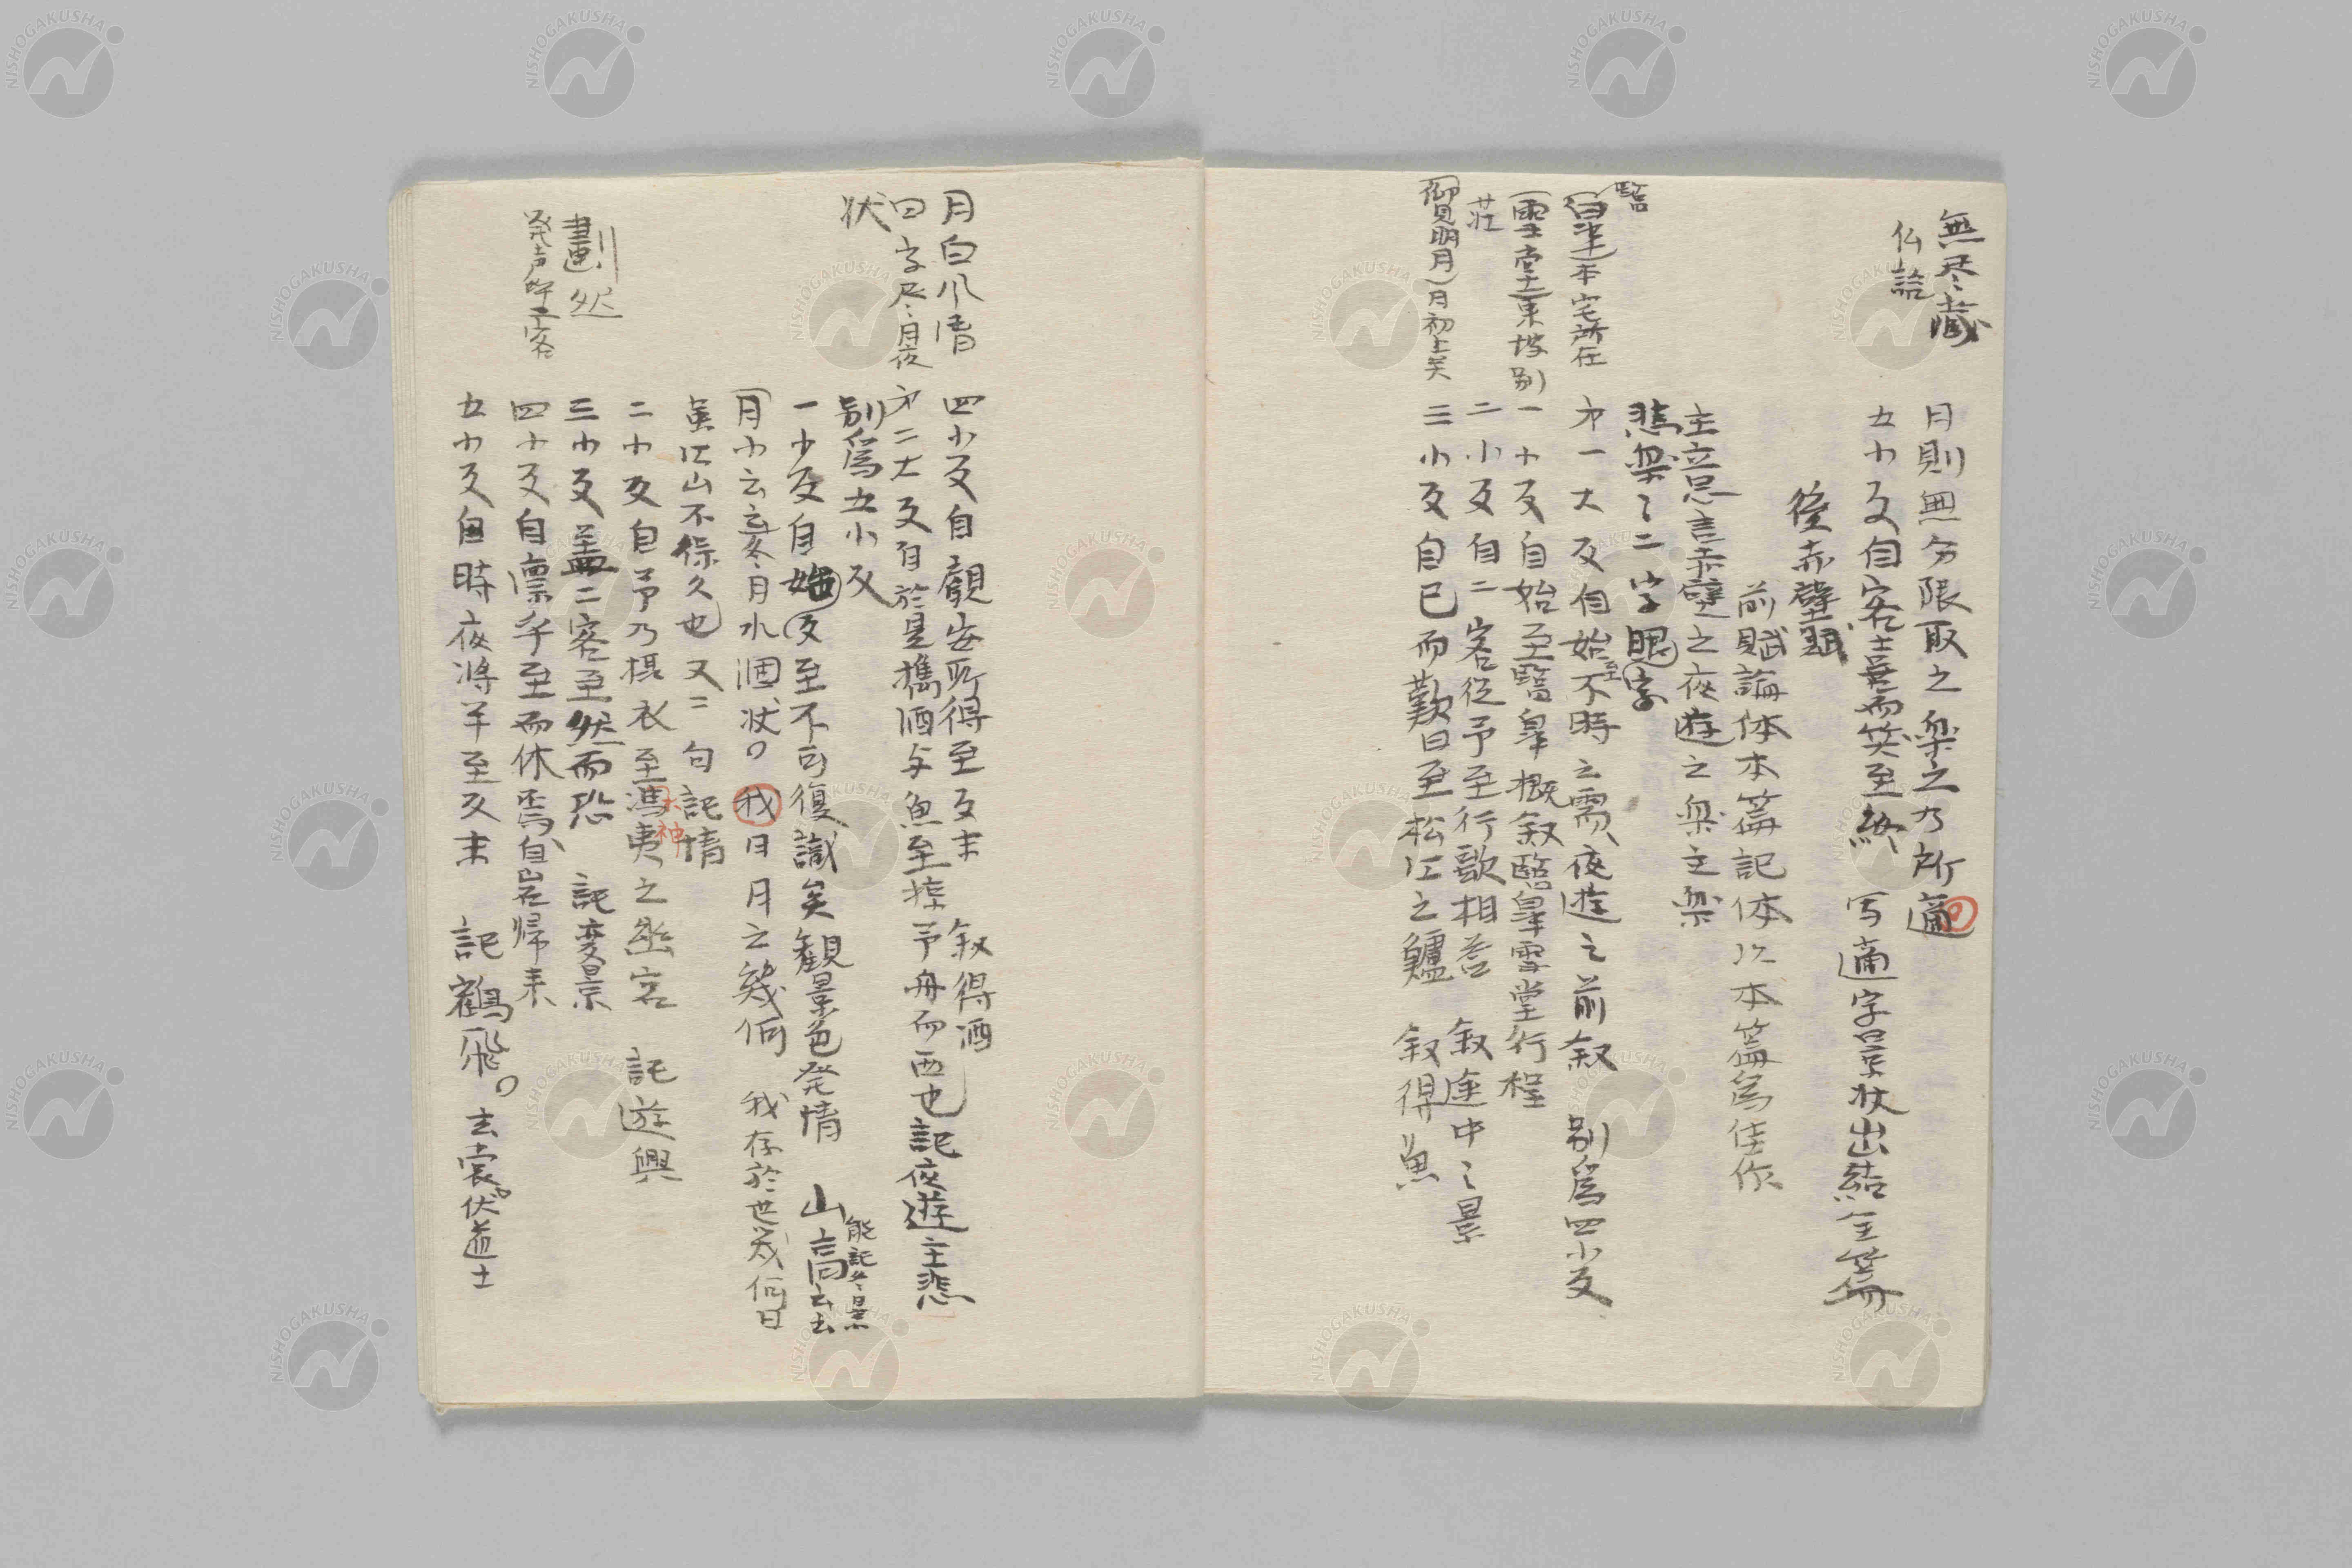 無尽蔵
仏語
月則無分限取之楽之乃所適
五小反自客喜而笑至終 写適字景状出結全篇
後赤壁賦
前賦論体本篇記体以本篇為佳作
主立思言赤壁之夜遊之楽之楽
悲楽之二字眼字
臨
臯 本宅所在
第一大反自始至不時之需夜遊之前叙 別為四小反
雪堂 東坡別
荘
一小反自始至臨皐概叙臨皐雪堂行程
二小反自二客従予至行歌相答 叙途中之景
仰見明月 月初上矣
三小反自已而歎曰至松江之鱸 叙得魚
月白風清
四字尽月夜
状
四小反自顧安所得至反末 叙得酒
第二大反自於是攜酒与魚至掠予舟而西也記夜遊主悲
別為五小反
能記冬景
一少反自始反至不可復識矣観景色発情 山高云云
月小云云冬月水涸状。我日月之幾何 我存於世幾何日
虽江山不得久也 又二句記情
二小反自予乃摂衣至馮夷之幽宮 記遊興
水神
劃然
三小反蓋二客至然而恐 記変景
四小反自凛乎至而休焉自岩帰来
五小反自時夜将半至反末 記鶴飛。玄裳 伏道士
NISHOGAKUSHA